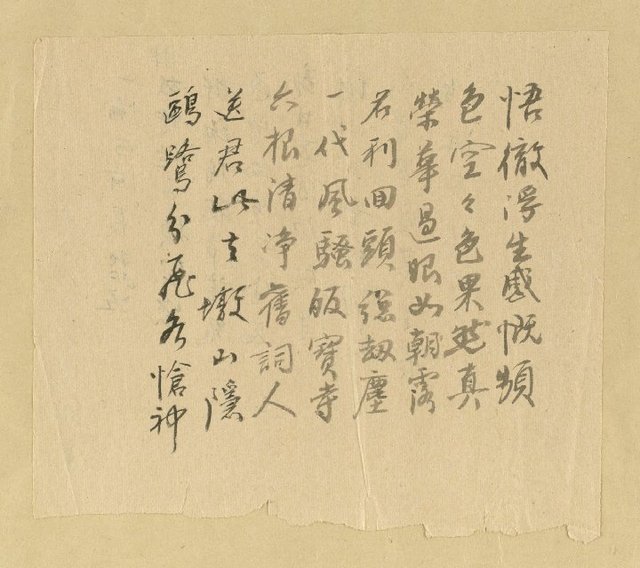 悟徹浮生感慨頻
色空々色果然真
榮華過眼如朝露
名利回頭總劫塵
一代風騷皈寶寺
六根清净舊詞人
送君此去墩山隱
鷗鷺分飛各愴神